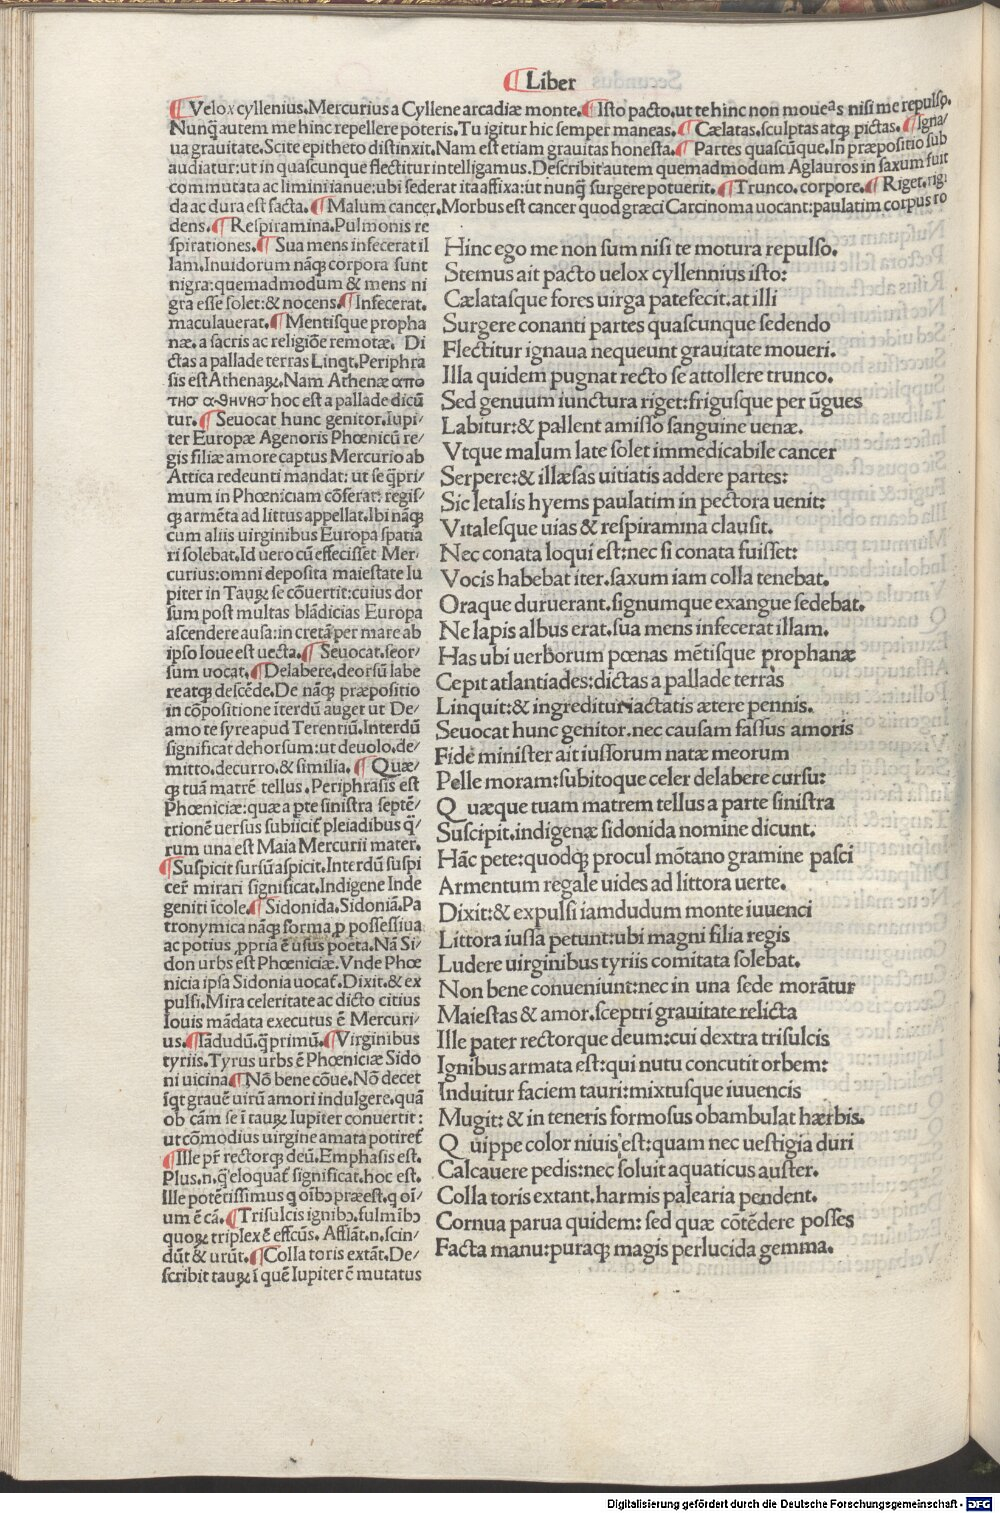 ¶ Liber
¶ Velox cyllenius. Mercurius a Cyllene arcadiæ monte. ¶ Isto pacto. ut te hinc non moueas nisi me repulso.
Nunq̃ autem me hinc repellere poteris. Tu igitur hic semper maneas. ¶ Cælatas. sculptas atqꝫ pictas. ¶ Igna/
ua grauitate. Scite epitheto distinxit. Nam est etiam grauitas honesta. ¶ Partes quascũque. In præpositio sub
audiatur: ut in quascunque flectitur intelligamus. Describit autem quemadmodum Aglauros in saxum fuit
commutata ac limini ianue: ubi sederat ita affixa: ut nunq̃ surgere potuerit. ¶ Trunco. corpore. ¶ Riget. rigi
da ac dura est facta. ¶ Malum cancer. Morbus est cancer quod græci Carcinoma uocant: paulatim corpus ro
dens. ¶ Respiramina. Pulmonis re
spirationes. ¶ Sua mens infecerat il
lam. Inuidorum nãqꝫ corpora sunt
nigra: quemadmodum & mens ni
gra esse solet: & nocens. ¶ Infecerat.
maculauerat. ¶ Mentisque propha
næ. a sacris ac religiõe remotæ. Di
ctas a pallade terras Linqt. Periphra
sis est Athenaꝝ. Nam Athenæ απο
τησ αθηνησ hoc est a pallade dicũ
tur. ¶ Seuocat hunc genitor. Iupi/
ter Europæ Agenoris Phœnicũ re/
gis filiæ amore captus Mercurio ab
Attica redeunti mandat: ut se q̃pri/
mum in Phœniciam cõferat: regis/
qꝫ armẽta ad littus appellat. Ibi nãqꝫ
cum aliis uirginibus Europa spatia
ri solebat. Id uero cũ effecisset Mer/
curius: omni deposita maiestate Iu
piter in Tauꝝ se cõuertit: cuius dor
sum post multas blãdicias Europa
ascendere ausa: in cretã per mare ab
ipso Ioue est uecta. ¶ Seuocat. seor/
sum uocat. ¶ Delabere. deorsũ labe
re atqꝫ descẽde. De nãqꝫ præpositio
in cõpositione ĩterdũ auget ut De/
amo te syre apud Terentiũ. Interdũ
significat dehorsum: ut deuolo. de/
mitto. decurro. & similia. ¶ Quæ/
qꝫ tuã matrẽ tellus. Periphrasis est
Phœniciæ: quæ a pte sinistra septẽ/
trionẽ uersus subiicit̃ pleiadibus q̃/
rum una est Maia Mercurii mater.
¶ Suspicit sursũ aspicit. Interdũ suspi
cer̃ mirari significat. Indigene Inde
geniti ĩcole. ¶ Sidonida. Sidoniã. Pa
tronymica nãqꝫ forma p possessiua
ac potius ppria ẽ usus poeta. Nã Si/
don urbs est Phœniciæ. Vnde Phœ
nicia ipsa Sidonia uocat̃. Dixit. & ex
pulsi. Mira celeritate ac dicto citius
Iouis mãdata executus ẽ Mercuri/
us. ¶ Iãdudũ. q̃primũ. ¶ Virginibus
tyriis. Tyrus urbs ẽ Phœniciæ Sido
ni uicina. ¶ Nõ bene cõue. Nõ decet
ĩqt grauẽ uirũ amori indulgere. quã
ob cãm se ĩ tauꝝ Iupiter conuertit:
ut cõmodius uirgine amata potiret̃
¶ Ille pr̃ rectorqꝫ deũ. Emphasis est.
Plus. n. q̃ eloquat̃ significat. hoc est.
Ille potẽtissimus q oĩbꝰ præest. q oĩ/
um ẽ cã. ¶ Trisulcis ignibꝰ. fulmĩbꝰ
quoꝝ triplex ẽ effcũs. Afflãt. n. scin/
dũt & urũt. ¶ Colla toris extãt. De/
scribit tauꝝ ĩ quẽ Iupiter ẽ mutatus
Hinc ego me non sum nisi te motura repulso.
Stemus ait pacto uelox cyllennius isto:
Cælatasque fores uirga patefecit. at illi
Surgere conanti partes quascunque sedendo
Flectitur ignaua nequeunt grauitate moueri.
Illa quidem pugnat recto se attollere trunco.
Sed genuum iunctura riget: frigusque per ũgues
Labitur: & pallent amisso sanguine uenæ.
Vtque malum late solet immedicabile cancer
Serpere: & illæsas uitiatis addere partes:
Sic letalis hyems paulatim in pectora uenit:
Vitalesque uias & respiramina clausit.
Nec conata loqui est: nec si conata fuisset:
Vocis habebat iter. saxum iam colla tenebat.
Oraque duruerant. signumque exangue sedebat.
Ne lapis albus erat. sua mens infecerat illam.
Has ubi uerborum pœnas mẽtisque prophanæ
Cepit atlantiades: dictas a pallade terras
Linquit: & ingreditur iactatis ætere pennis.
Seuocat hunc genitor. nec causam fassus amoris
Fide minister ait iussorum natæ meorum
Pelle moram: subitoque celer delabere cursu:
Quæque tuam matrem tellus a parte sinistra
Suscipit. indigenæ sidonida nomine dicunt.
Hãc pete: quodqꝫ procul mõtano gramine pasci
Armentum regale uides ad littora uerte.
Dixit: & expulsi iamdudum monte iuuenci
Littora iussa petunt: ubi magni filia regis
Ludere uirginibus tyriis comitata solebat.
Non bene conueniunt: nec in una sede morãtur
Maiestas & amor. sceptri grauitate relicta
Ille pater rectorque deum: cui dextra trisulcis
Ignibus armata est: qui nutu concutit orbem:
Induitur faciem tauri: mixtusque iuuencis
Mugit: & in teneris formosus obambulat hærbis.
Quippe color niuis est: quam nec uestigia duri
Calcauere pedis: nec soluit aquaticus auster.
Colla toris extant. harmis palearia pendent.
Cornua parua quidem: sed quæ cõtẽdere posses
Facta manu: puraqꝫ magis perlucida gemma.
Digitalisierung gefördert durch die Deutsche Forschungsgemeinschaft - DFG